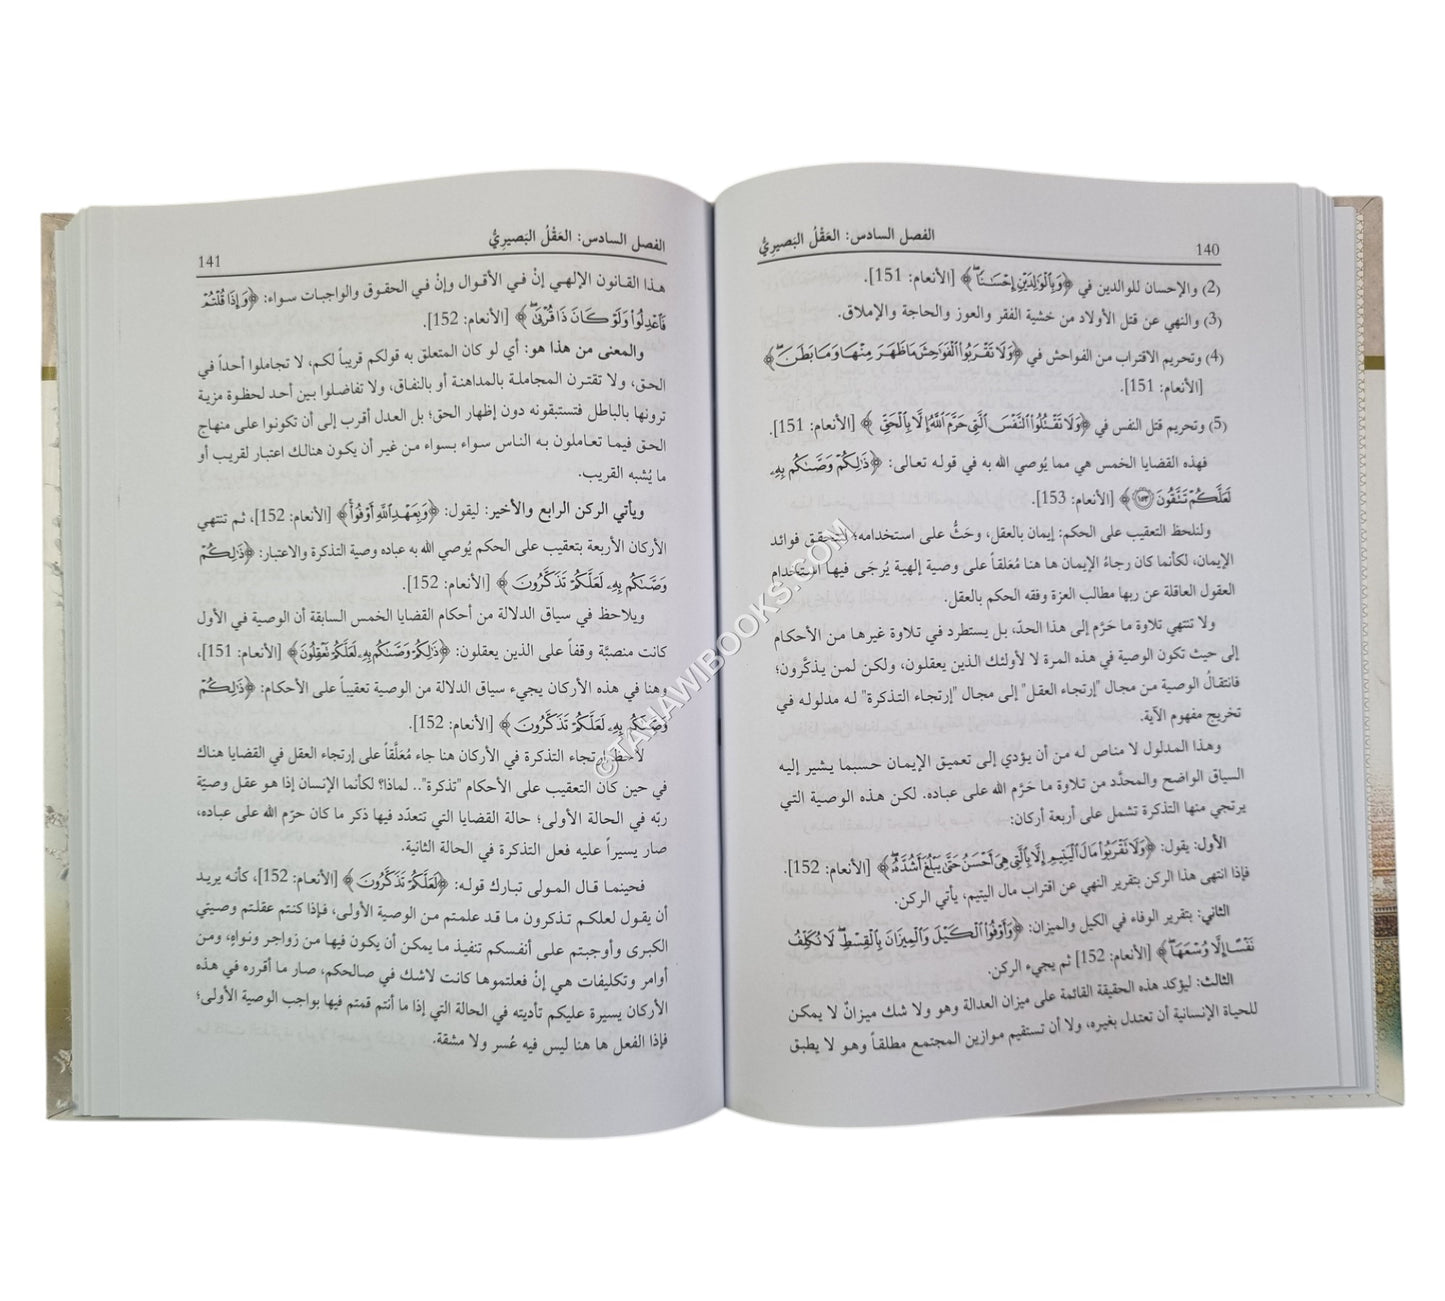 140
الفصل السادس: العَقْلُ البَصيرِيُّ
(2) والإحسان للوالدين في ﴿وَبِٱلۡوَٰلِدَيۡنِ إِحۡسَٰنٗاۖ﴾ [الأنعام: 151].
(3) والنهي عن قتل الأولاد من خشية الفقر والعوز والحاجة والإملاق.
(4) وتحريم الاقتراب من الفواحش في ﴿وَلَا تَقۡرَبُواْ ٱلۡفَوَٰحِشَ مَا ظَهَرَ مِنۡهَا وَمَا بَطَنَۖ﴾
[الأنعام: 151].
(5) وتحريم قتل النفس في ﴿وَلَا تَقۡتُلُواْ ٱلنَّفۡسَ ٱلَّتِي حَرَّمَ ٱللَّهُ إِلَّا بِٱلۡحَقِّ﴾ [الأنعام: 151].
فهذه القضايا الخمس هي مما يُوصي الله به في قوله تعالى: ﴿ذَٰلِكُمۡ وَصَّىٰكُم بِهِۦ
لَعَلَّكُمۡ تَتَّقُونَ ١٥٣﴾ [الأنعام: 153].
ولنلحظ التعقيب على الحكم: إيمان بالعقل، وحَثُّ على استخدامه؛ لتحقق فوائد
الإيمان، لكأنما كان رجاءُ الإيمان ها هنا مُعَلقاً على وصية إلهية يُرجَى فيها استخدام
العقول العاقلة عن ربها مطالب العزة وفقه الحكم بالعقل.
ولا تنتهي تلاوة ما حَرَّم إلى هذا الحدّ، بل يستطرد في تلاوة غيرها من الأحكام
إلى حيث تكون الوصية في هذه المرة لا لأولئك الذين يعقلون، ولكن لمن يذكَّرون؛
فانتقالُ الوصية من مجال "إرتجاء العقل" إلى مجال "إرتجاء التذكرة" له مدلوله في
تخريج مفهوم الآية.
وهذا المدلول لا مناص له من أن يؤدي إلى تعميق الإيمان حسبما يشير إليه
السياق الواضح والمحدَّد من تلاوة ما حَرَّم الله على عباده. لكن هذه الوصية التي
يرتجي منها التذكرة تشمل على أربعة أركان:
الأول: يقول: ﴿وَلَا تَقۡرَبُواْ مَالَ ٱلۡيَتِيمِ إِلَّا بِٱلَّتِي هِيَ أَحۡسَنُ حَتَّىٰ يَبۡلُغَ أَشُدَّهُۥۖ﴾ [الأنعام: 152].
فإذا انتهى هذا الركن بتقرير النهي عن اقتراب مال اليتيم، يأتي الركن.
الثاني: بتقرير الوفاء في الكيل والميزان: ﴿وَأَوۡفُواْ ٱلۡكَيۡلَ وَٱلۡمِيزَانَ بِٱلۡقِسۡطِۖ لَا نُكَلِّفُ
نَفۡسًا إِلَّا وُسۡعَهَاۖ﴾ [الأنعام: 152] ثم يجيء الركن.
الثالث: ليؤكد هذه الحقيقة القائمة على ميزان العدالة وهو ولا شك ميزانٌ لا يمكن
للحياة الإنسانية أن تعتدل بغيره، ولا أن تستقيم موازين المجتمع مطلقاً وهو لا يطبق
الفصل السادس: العَقْلُ البَصيرِيُّ
141
هذا القانون الإلهي إنْ في الأقوال وإنْ في الحقوق والواجبات سواء: ﴿وَإِذَا قُلۡتُمۡ
فَٱعۡدِلُواْ وَلَوۡ كَانَ ذَا قُرۡبَىٰۖ﴾ [الأنعام: 152].
والمعنى من هذا هو: أي لو كان المتعلق به قولكم قريباً لكم، لا تجاملوا أحداً في
الحق، ولا تقترن المجاملة بالمداهنة أو بالنفاق، ولا تفاضلوا بين أحد لحظوة مزية
ترونها بالباطل فتستبقونه دون إظهار الحق؛ بل العدل أقرب إلى أن تكونوا على منهاج
الحق فيما تعاملون به الناس سواء بسواء من غير أن يكون هنالك اعتبار لقريب أو
ما يُشبه القريب.
ويأتي الركن الرابع والأخير: ليقول: ﴿وَبِعَهۡدِ ٱللَّهِ أَوۡفُواْۚ﴾ [الأنعام: 152]، ثم تنتهي
الأركان الأربعة بتعقيب على الحكم يُوصي الله به عباده وصية التذكرة والاعتبار: ﴿ذَٰلِكُمۡ
وَصَّىٰكُم بِهِۦ لَعَلَّكُمۡ تَذَكَّرُونَ﴾ [الأنعام: 152].
ويلاحظ في سياق الدلالة من أحكام القضايا الخمس السابقة أن الوصية في الأول
كانت منصبَّة وقفاً على الذين يعقلون: ﴿ذَٰلِكُمۡ وَصَّىٰكُم بِهِۦ لَعَلَّكُمۡ تَعۡقِلُونَ﴾ [الأنعام: 151]،
وهنا في هذه الأركان يجيء سياق الدلالة من الوصية تعقيباً على الأحكام: ﴿ذَٰلِكُمۡ
وَصَّىٰكُم بِهِۦ لَعَلَّكُمۡ تَذَكَّرُونَ﴾ [الأنعام: 152].
لاحظ إرتجاء التذكرة في الأركان هنا جاء مُعَلَّقاً على إرتجاء العقل في القضايا هناك
في حين كان التعقيب على الأحكام "تذكرة".. لماذا؟ لكأنما الإنسان إذا هو عقل وصيّة
ربّه في الحالة الأولى؛ حالة القضايا التي تتعدّد فيها ذكر ما كان حرّم الله على عباده،
صار يسيراً عليه فعل التذكرة في الحالة الثانية.
فحينما قال المولى تبارك قوله: ﴿لَعَلَّكُمۡ تَذَكَّرُونَ﴾ [الأنعام: 152]، كأنه يريد
أن يقول لعلكم تذكرون ما قد علمتم من الوصية الأولى، فإذا كنتم عقلتم وصيتي
الكبرى وأوجبتم على أنفسكم تنفيذ ما يمكن أن يكون فيها من زواجر ونواهٍ، ومن
أوامر وتكليفات هي إنْ فعلتموها كانت لاشك في صالحكم، صار ما أقرره في هذه
الأركان يسيرة عليكم تأديته في الحالة التي إذا ما أنتم قمتم فيها بواجب الوصية الأولى؛
فإذا الفعل ها هنا ليس فيه عُسر ولا مشقة.
©TAHAWIBOOKS.COM